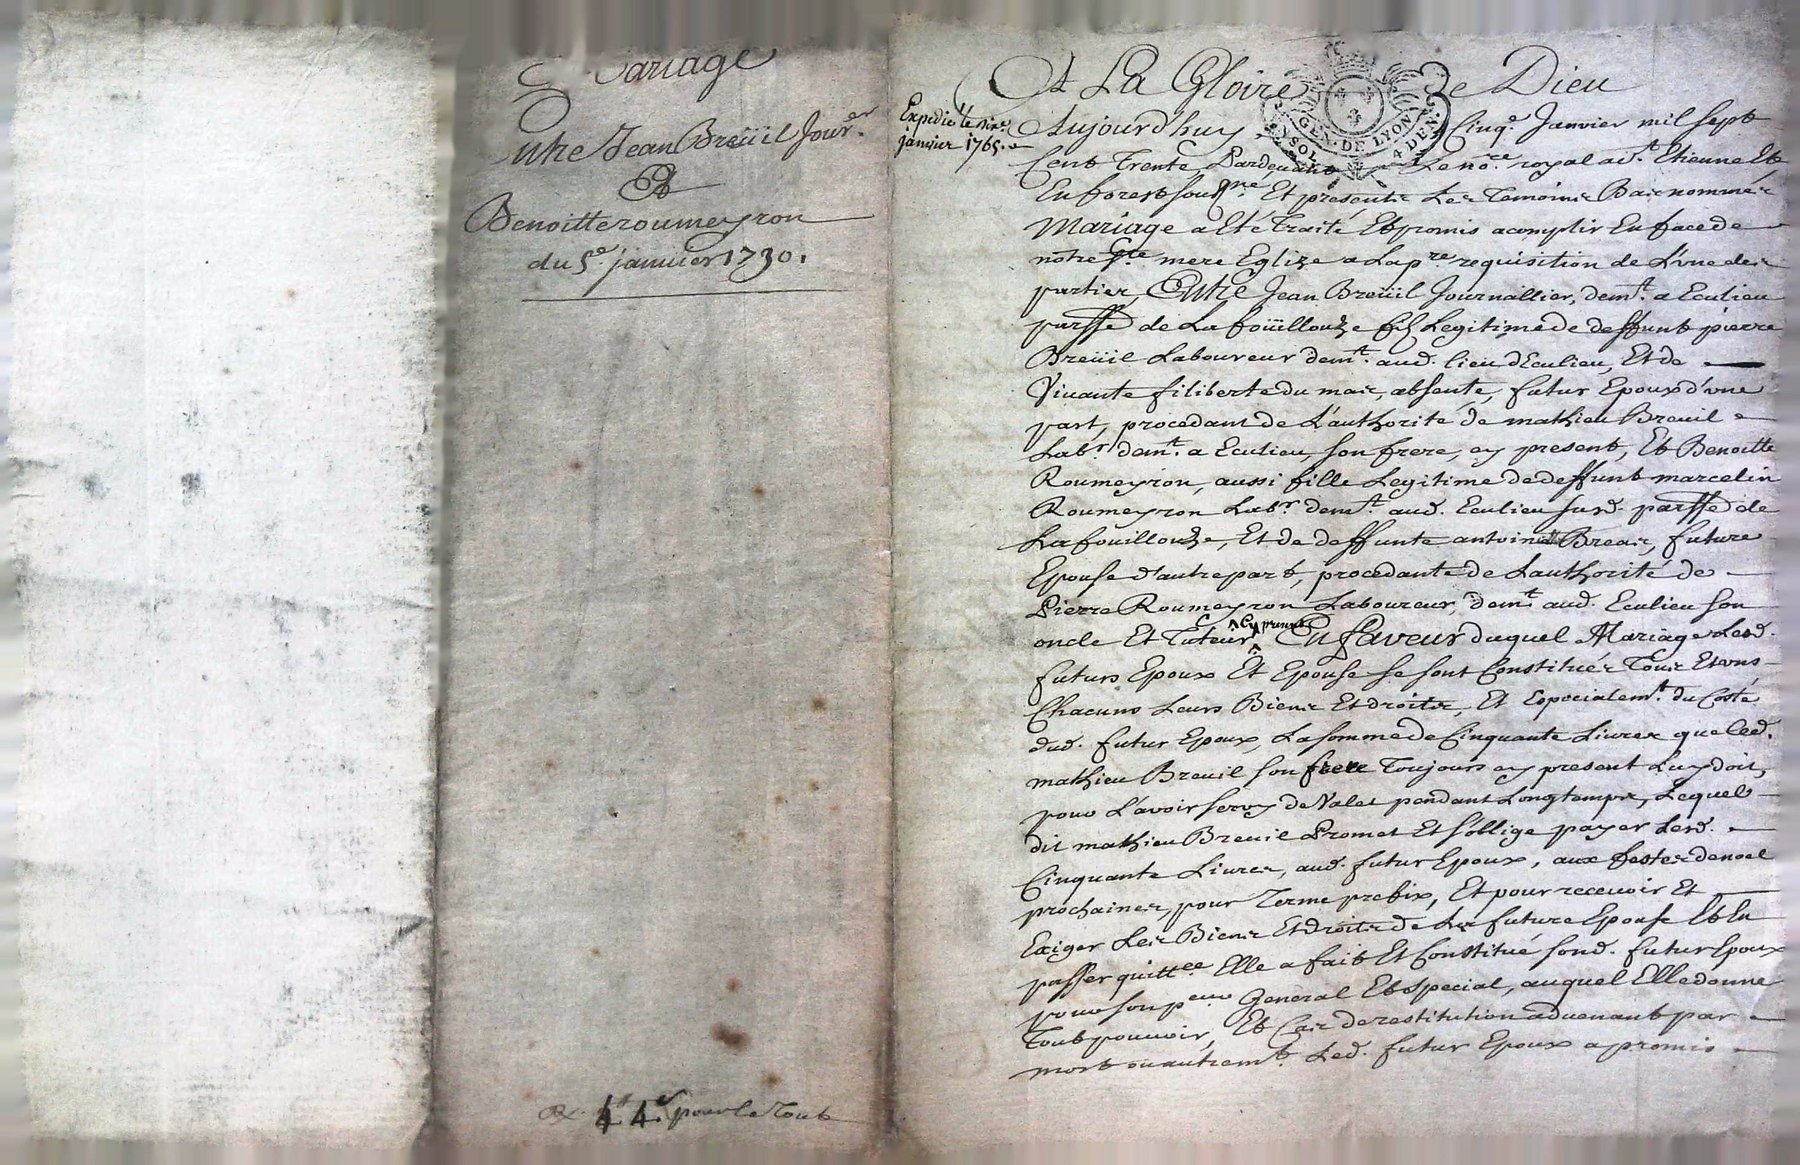 Mariage
Entre Jean Breüil Jour.er
Et
Benoitte roumeyron
du 5e. janvier 1730.
4 4 pour le Tout
A La Gloire De Dieu
GEN. DE LYON
4 DEN.
Expedié le
janvier 1765.
Aujourd'huy Cinqe. Janvier mil sept
Cent Trente, Pardevant Le nore. royal a St. Etienne Et
En forest sousne. Et presents Les Temoins Bas nommés
Mariage a Eté Traité Et promis acomplir En face de
nôtre Ste mere Eglize a La pre. requisition de L'une des
parties, Entre Jean Breüil Journallier, demt. a Eculieu
parsse de La foüillouze fils Legitime de deffunt pierre
Breüil Laboureur demt. aud. lieu d'Eculieu, Et de
Vivante filiberte du mas, absente, futur Epoux d'une
part, procedant de L'authorité de mathieu Breuil
Labr. demt. a Eculieu, son frere, cy present, Et Benoitte
Roumeyron, aussi fille Legitime de deffunt marcelin
Roumeyron Labr. demt. aud. Eculieu susd. parsse de
La fouillouze, Et de deffunte antoinette Breas, future
Epouse d'autre part, procedante de Lauthorité de
Pierre Roumeyron Laboureur, demt. aud. Eculieu son
oncle Et Tuteur, cy present En faveur duquel Mariage Lesd.
futurs Epoux Et Epouse se sont Constitués Tous Et uns
Chacuns Leurs Biens Et droits, Et Especialemt. du Costé
dud. futur Epoux, La somme de Cinquante Livres que led.
mathieu Breuil son frere Toujours cy present Luy doit,
pour L'avoir servy de Valet pendant Longtemps, Lequel
dit mathieu Breuil Promet Et s'oblige payer Lesd.
Cinquante Livres, aud. futur Epoux, aux festes de noel
prochaines, pour Terme prefix, Et pour recevoir Et
Exiger Les Biens Et droits de La future Epouse Et En
passer quittce. Elle a fait Et Constitué sond. futur Epoux
pour son peur General Et special, auquel Elle donne
Tout pouvoir, Et Cas de restitution advenant par
mort ou autremt. Led. futur Epoux a promis